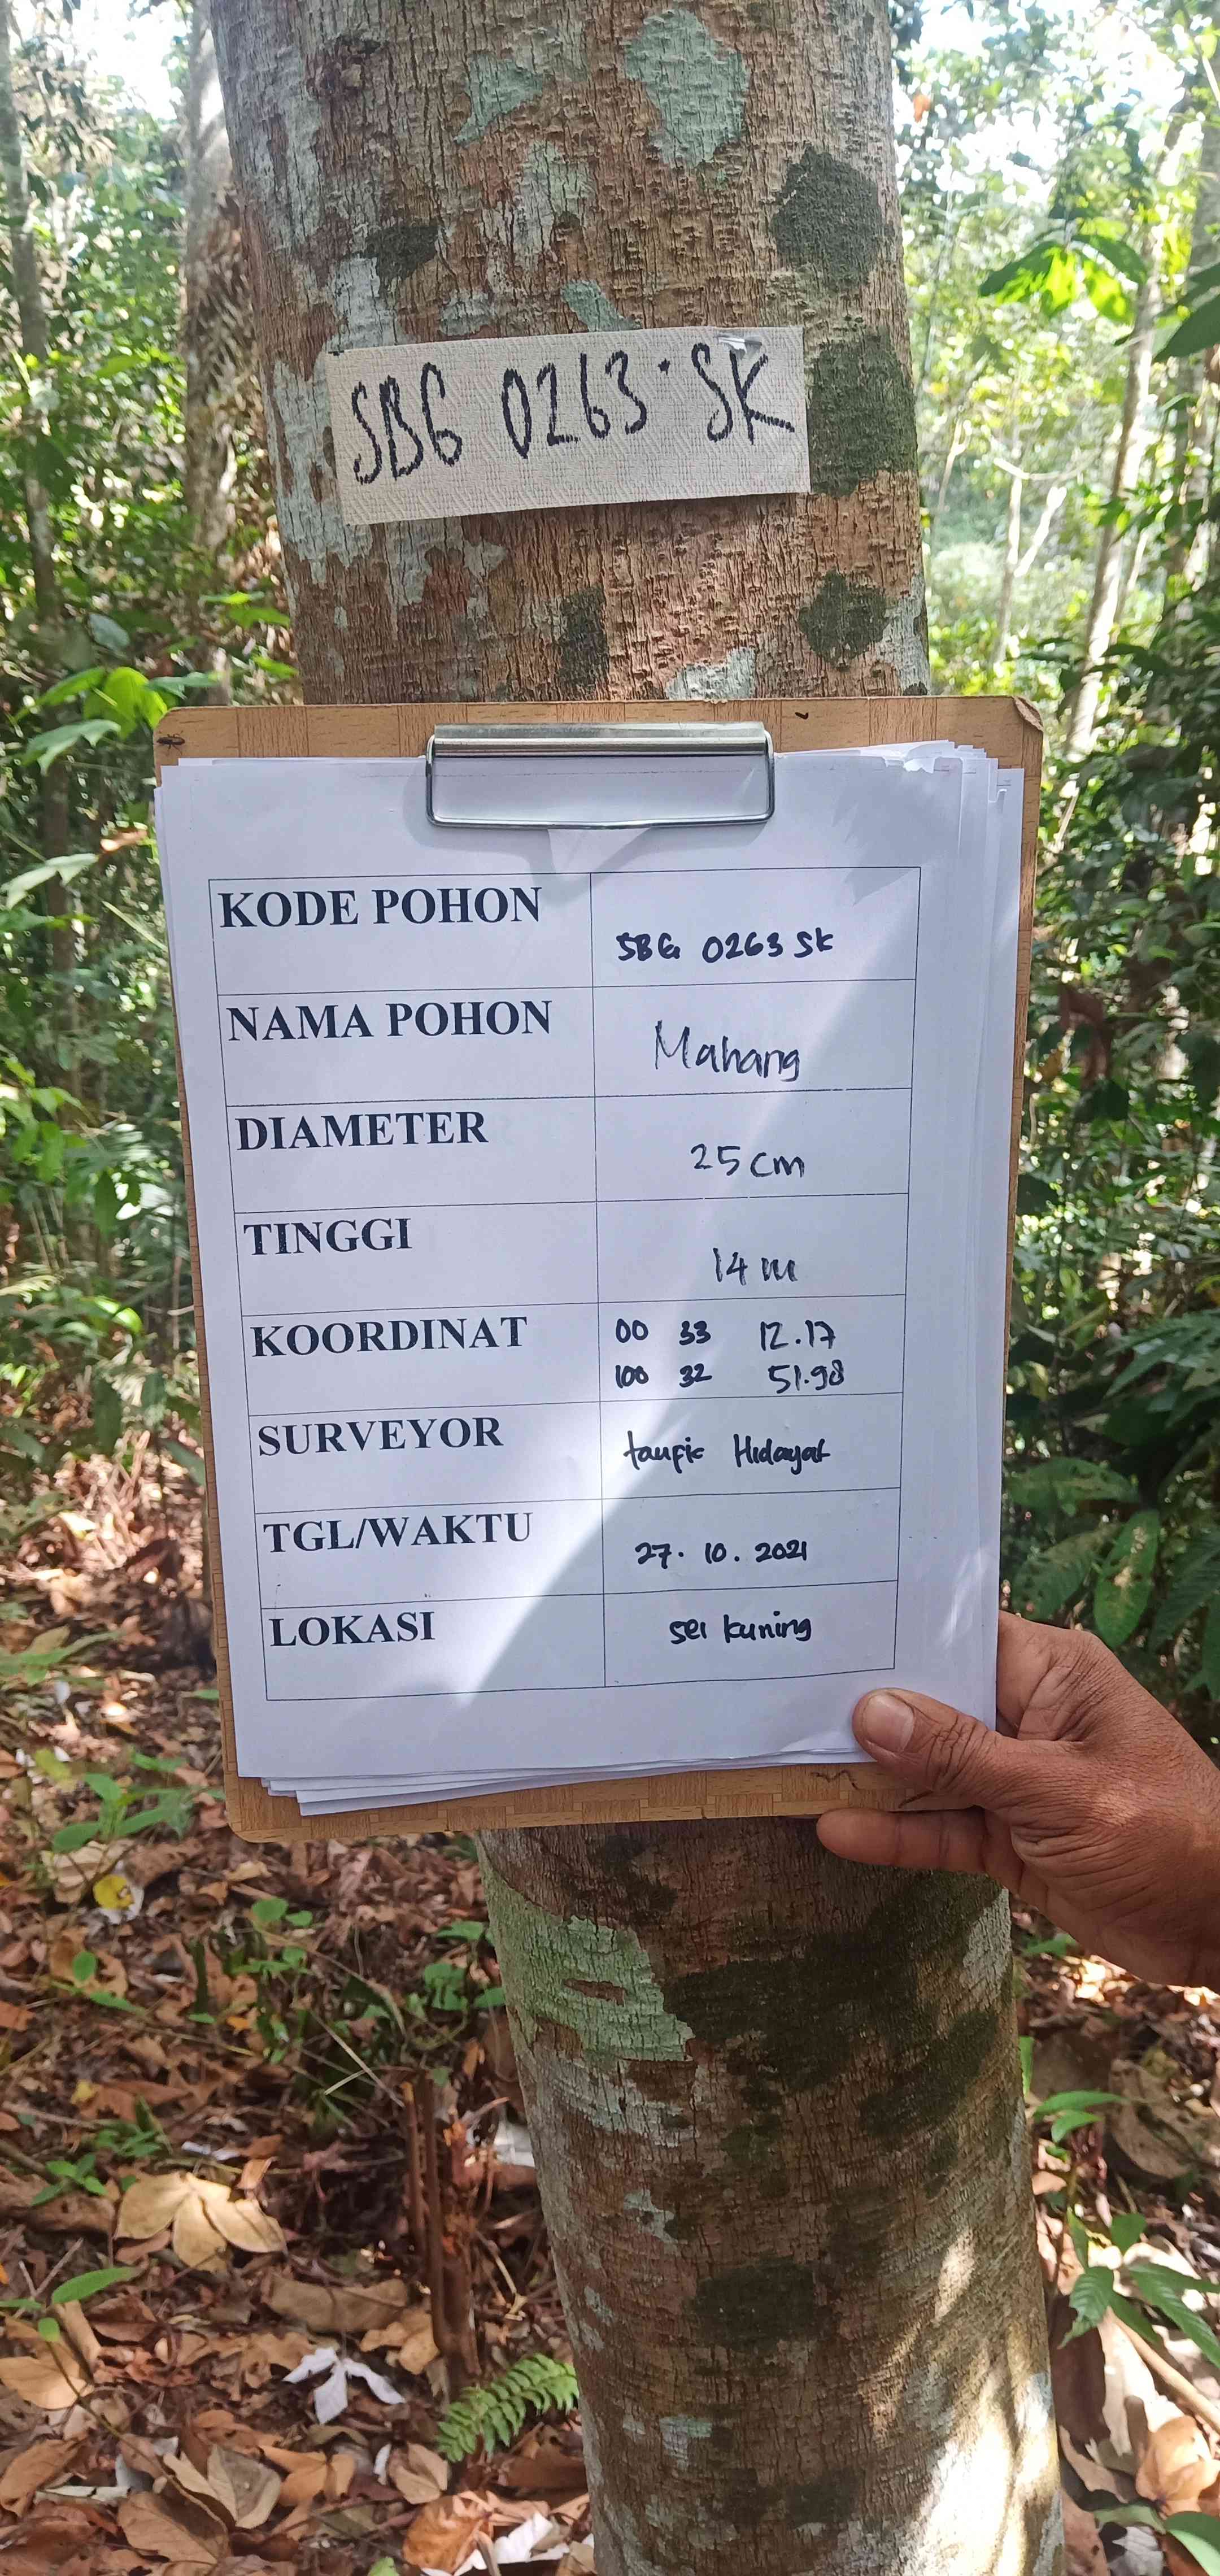 SBG 0263 · SK
KODE POHON
SBG 0263 SK
NAMA POHON
Mahang
DIAMETER
25 cm
TINGGI
14 m
KOORDINAT
00 33 12.17
100 32 51.98
SURVEYOR
taufic Hidayat
TGL/WAKTU
27. 10. 2021
LOKASI
sei kuning